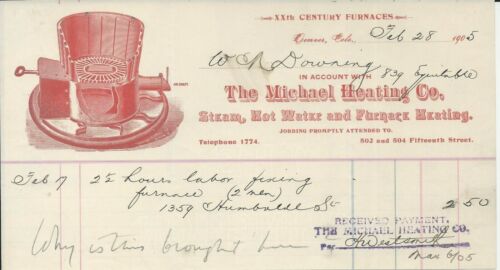 XXth CENTURY FURNACES
Denver, Colo. Feb 28 1905
W A Downing
IN ACCOUNT WITH 839 Equitable
The Michael Heating Co.
Steam, Hot Water and Furnace Heating.
JOBBING PROMPTLY ATTENDED TO.
Telephone 1774. 802 and 804 Fifteenth Street.
Feb 7 2½ hours labor fixing
furnace (2 men)
1359 Humboldt St 2 50
RECEIVED PAYMENT,
THE MICHAEL HEATING CO.
Per
Mar 6/05
Why is this brought here